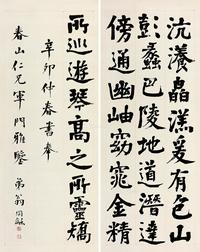 沆瀁皛溔爰有包山
彭蠡巴陵地道潛逵
傍通幽岫窈窕金精
所巡遊琴高之所靈矯
辛卯仲春書奉
春山仁兄軍門雅鑒
弟翁同龢